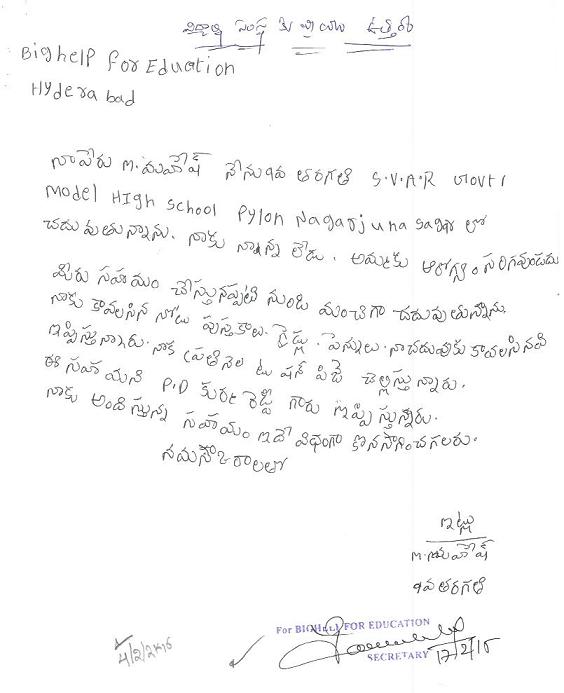 విద్యార్థి సంస్థ కు వ్రాయు ఉత్తరం
Bighelp for Eduation
Hyderabad
నాపేరు M.మహేష్ నేను 9వ తరగతి S.V.A.R Govt
Model High school Pylon Nagarjuna sagar లో
చదువుతున్నాను. నాకు నాన్న లేడు. అమ్మకు ఆరోగ్యం సరిగవుండదు
మీరు సహాయం చేస్తునప్పటి నుండి మంచిగా చదువుతున్నాను.
నాకు కావలసిన నోటు పుస్తకాలు. పెన్నులు. నాచదువుకు కావలసినవి
ఇప్పిస్తున్నారు. నాకు ప్రతినెల టుషన్ పీజే చెల్లిస్తున్నారు.
ఈ సహాయని P.D రెడ్డి గారు ఇప్పిస్తున్నారు.
నాకు అందిస్తున్న సహాయం ఇదే విధంగా కొనసాగించగలరు.
నమస్కారాలతో
ఇట్లు
M.మహేష్
9వ తరగతి
For BIGHELP FOR EDUCATION
SECRETARY 17/2/15